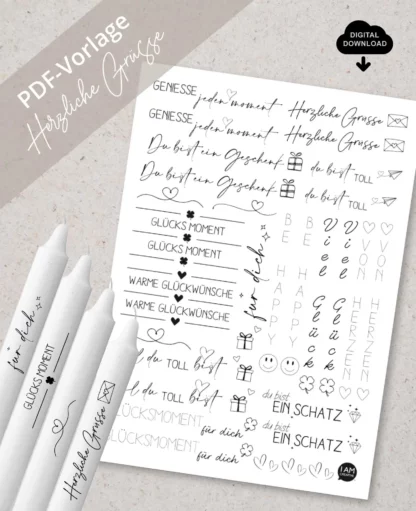 PDF-Vorlage
Herzliche Grüsse
DIGITAL
DOWNLOAD
GENIESSE
jeden moment
Herzliche Grüsse
GENIESSE
jeden moment
Herzliche Grüsse
Du bist ein Geschenk
du bist TOLL
Du bist ein Geschenk
du bist TOLL
GLÜCKS MOMENT
GLÜCKS MOMENT
WARME GLÜCKWÜNSCHE
WARME GLÜCKWÜNSCHE
für dich
BE HAPPY
BE HAPPY
Viel Glück
Viel Glück
VON HERZEN
VON HERZEN
du TOLL bist
du TOLL bist
GLÜCKSMOMENT
für dich
GLÜCKSMOMENT
für dich
du bist
EIN SCHATZ
du bist
EIN SCHATZ
I AM
für dich
GLÜCKS MOMENT
Herzliche Grüsse